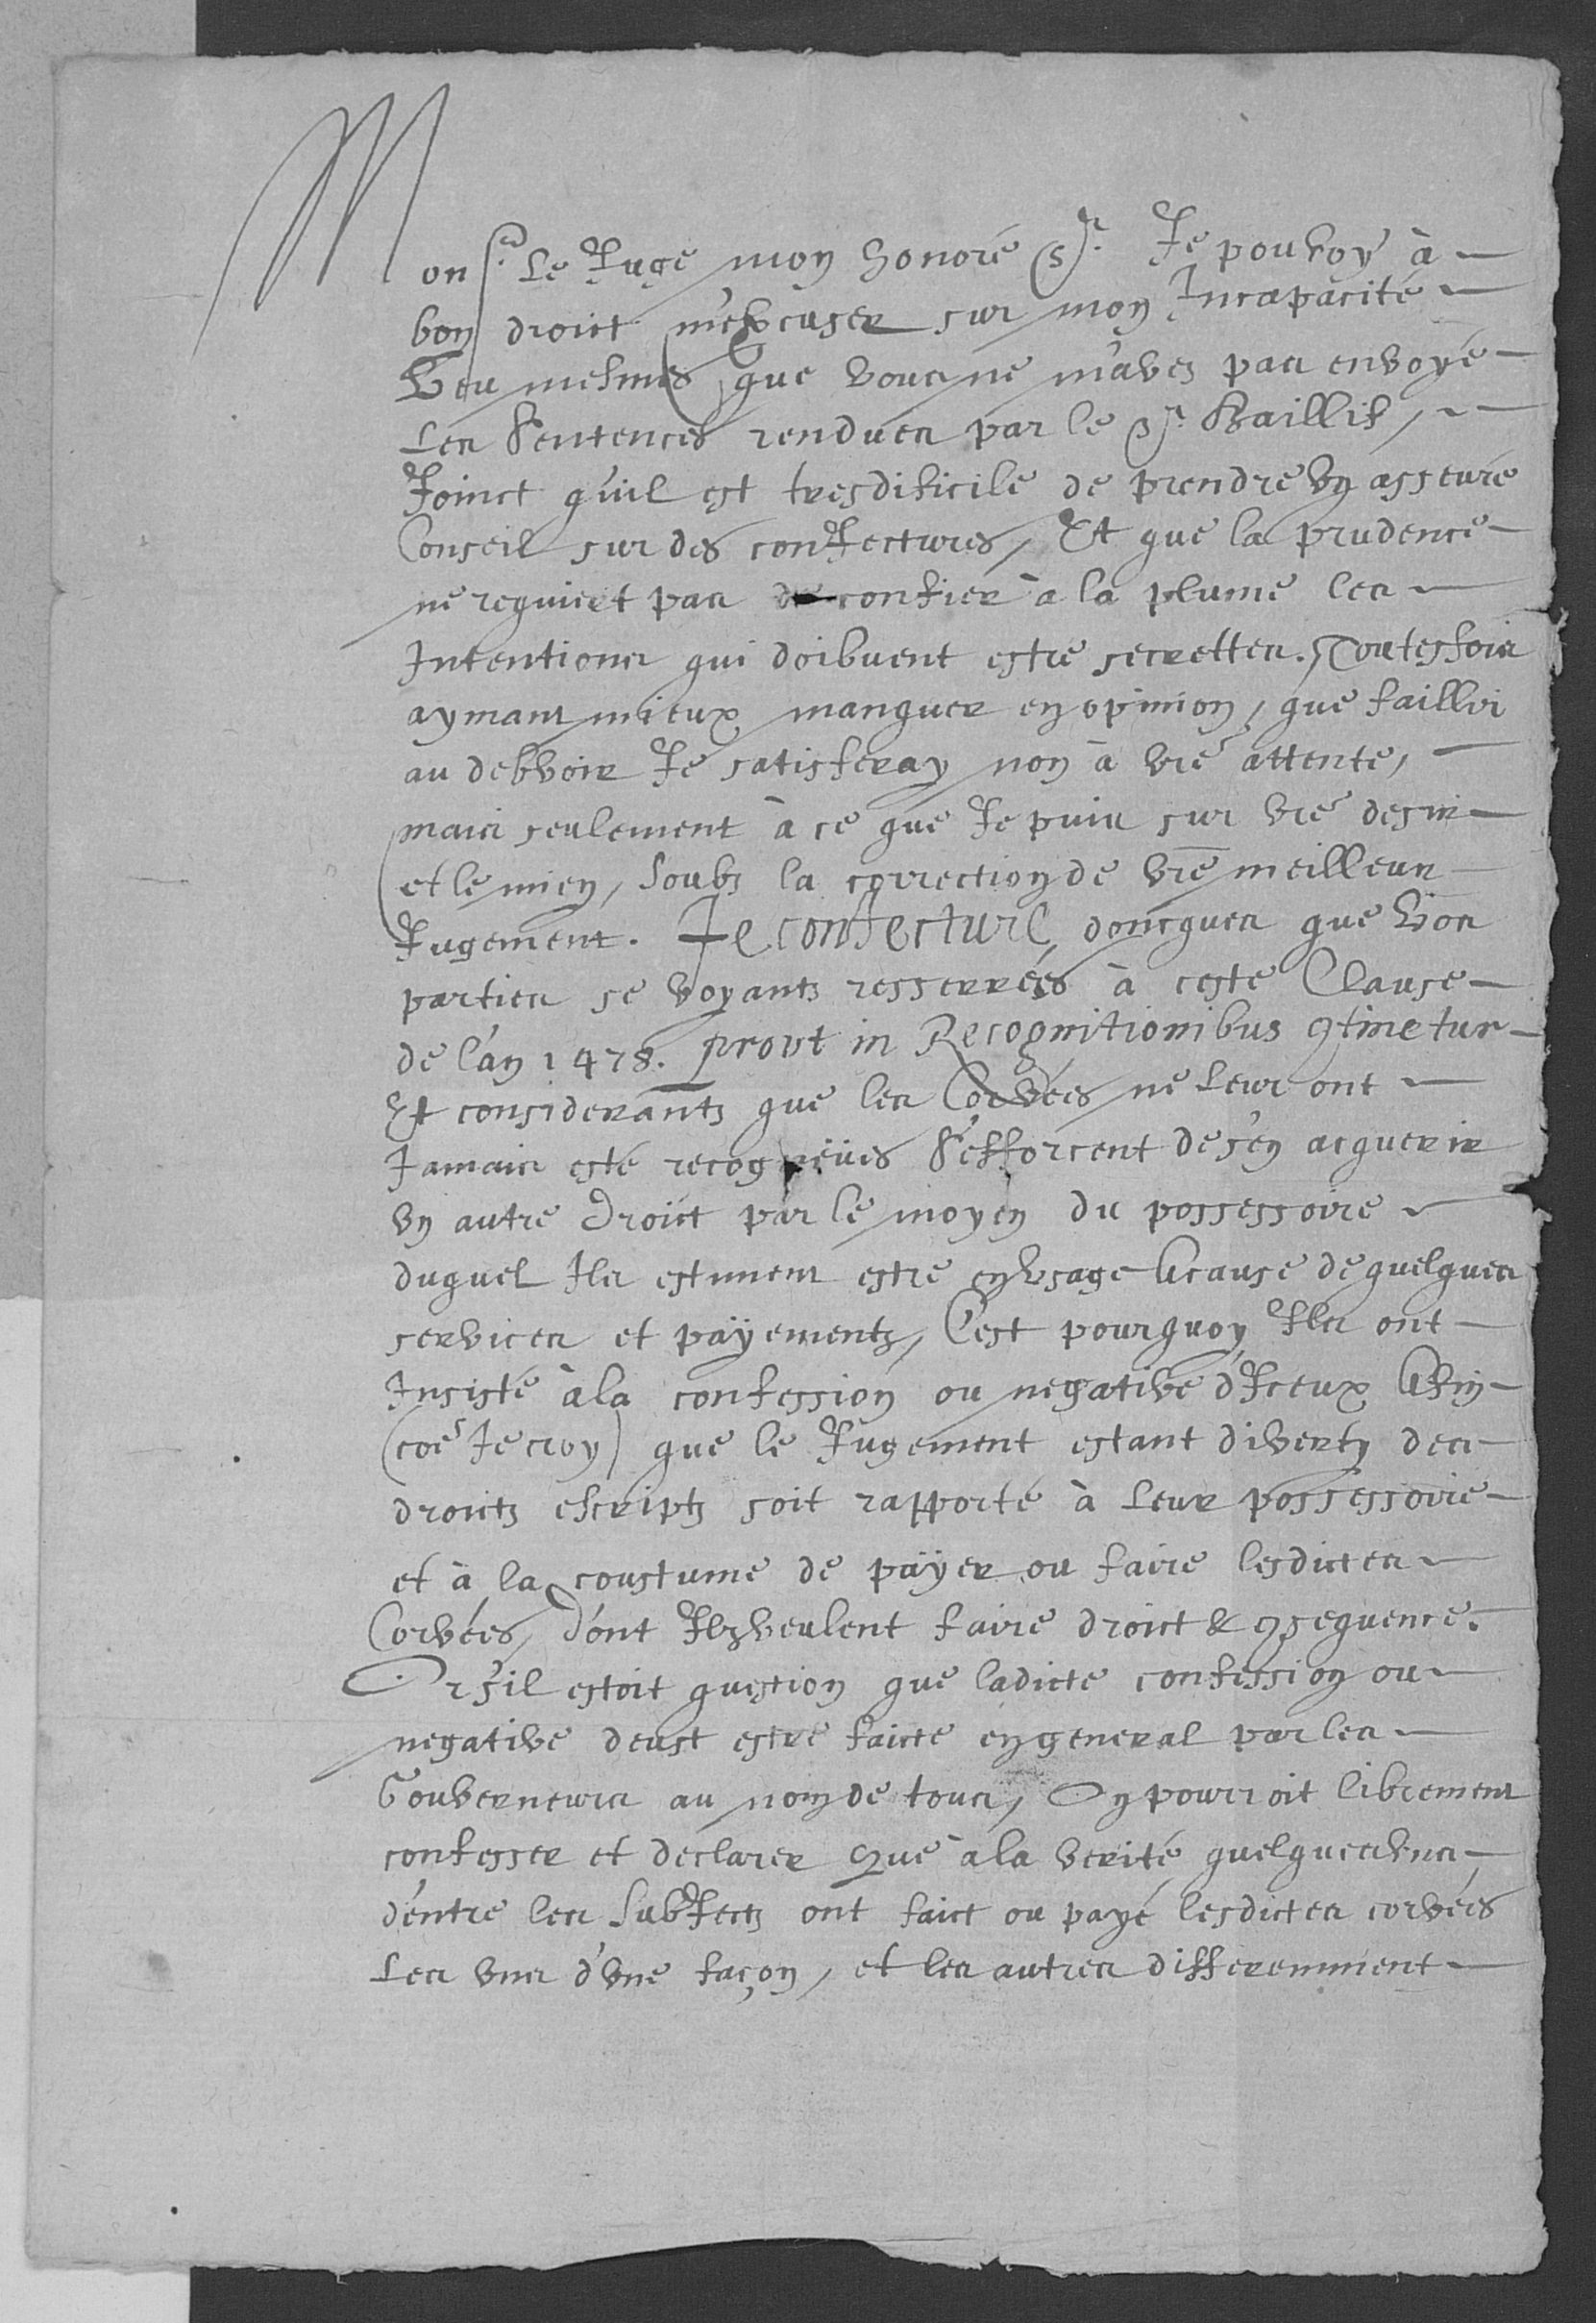 Monsr. Le Juge mon honoré Sr. Je pouvoy à
bon droict m'excuser sur mon Incapacité
Veu mesmes que vous ne m'avez pas envoyé
Les Sentences rendues par le Sr. Baillif,
Joinct qu'il est tresdificile de prendre vn asseuré
Conseil sur des conJectures, Et que la prudence
ne requiert pas de confier à la plume les
Intentions qui doibuent estre secrettes. Toutesfois
aymant mieux manquer en opinion, que faillir
au debvoir Je satisferay non à vre attente,
mais seulement à ce que Je puis sur vre desir
et le mien, soubz la correction de vre meilleur
Jugement. Je conJecture doncques que voz
parties se voyantz resserrées à ceste Clause
de l'an 1478. prout in Recognitionibus 9tinetur
Et considerantz que les Corvées ne leur ont
Jamais esté recogneües S'efforcent de s'en acquerir
vn autre droict par le moyen du possessoire
duquel Ils estiment estre en vsage A cause de quelques
services et päyementz, C'est pourquoy Ils ont
Insisté à la confession ou negative d'Iceux Afin
(coe Je croy) que le Jugement estant diverty des
droictz escriptz soit rapporté à Leur possessoire
et à la coustume de päyer ou faire lesdictes
Corvées, d'ont Ilz veulent faire droict & 9sequence.
Or s'il estoit question que ladicte confession ou
negative deust estre faicte en general par les
Gouverneurs au nom de tous, On pourroit librement
confesser et declarer Que à la verité quelques vns
d'entre les SubJectz ont faict ou payé lesdictes corvées
Les vns d'vne façon, et les autres differemment